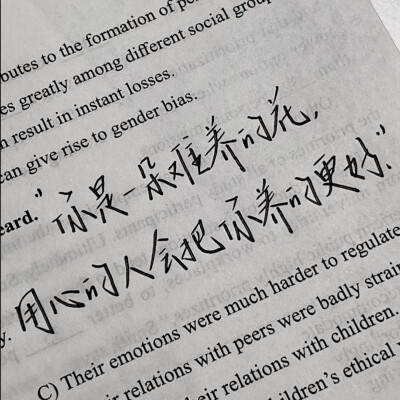 butes to the formation of pe
es greatly among different social group
n result in instant losses.
can give rise to gender bias.
eard."
"你是一朵难养的花,
用心的人会把你养的更好."
y.
C) Their emotions were much harder to regulate
ir relations with peers were badly strain
eir relations with children.
ildren's ethical v